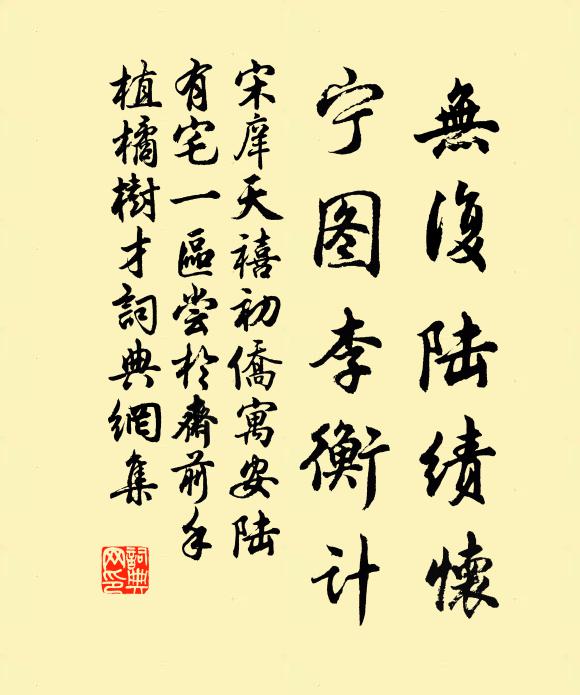 無復陆绩懷
宁图李衡计
宋庠天禧初僑寓安陆
有宅一區尝於齋前手
植橘樹才詞典網集
詞典网印